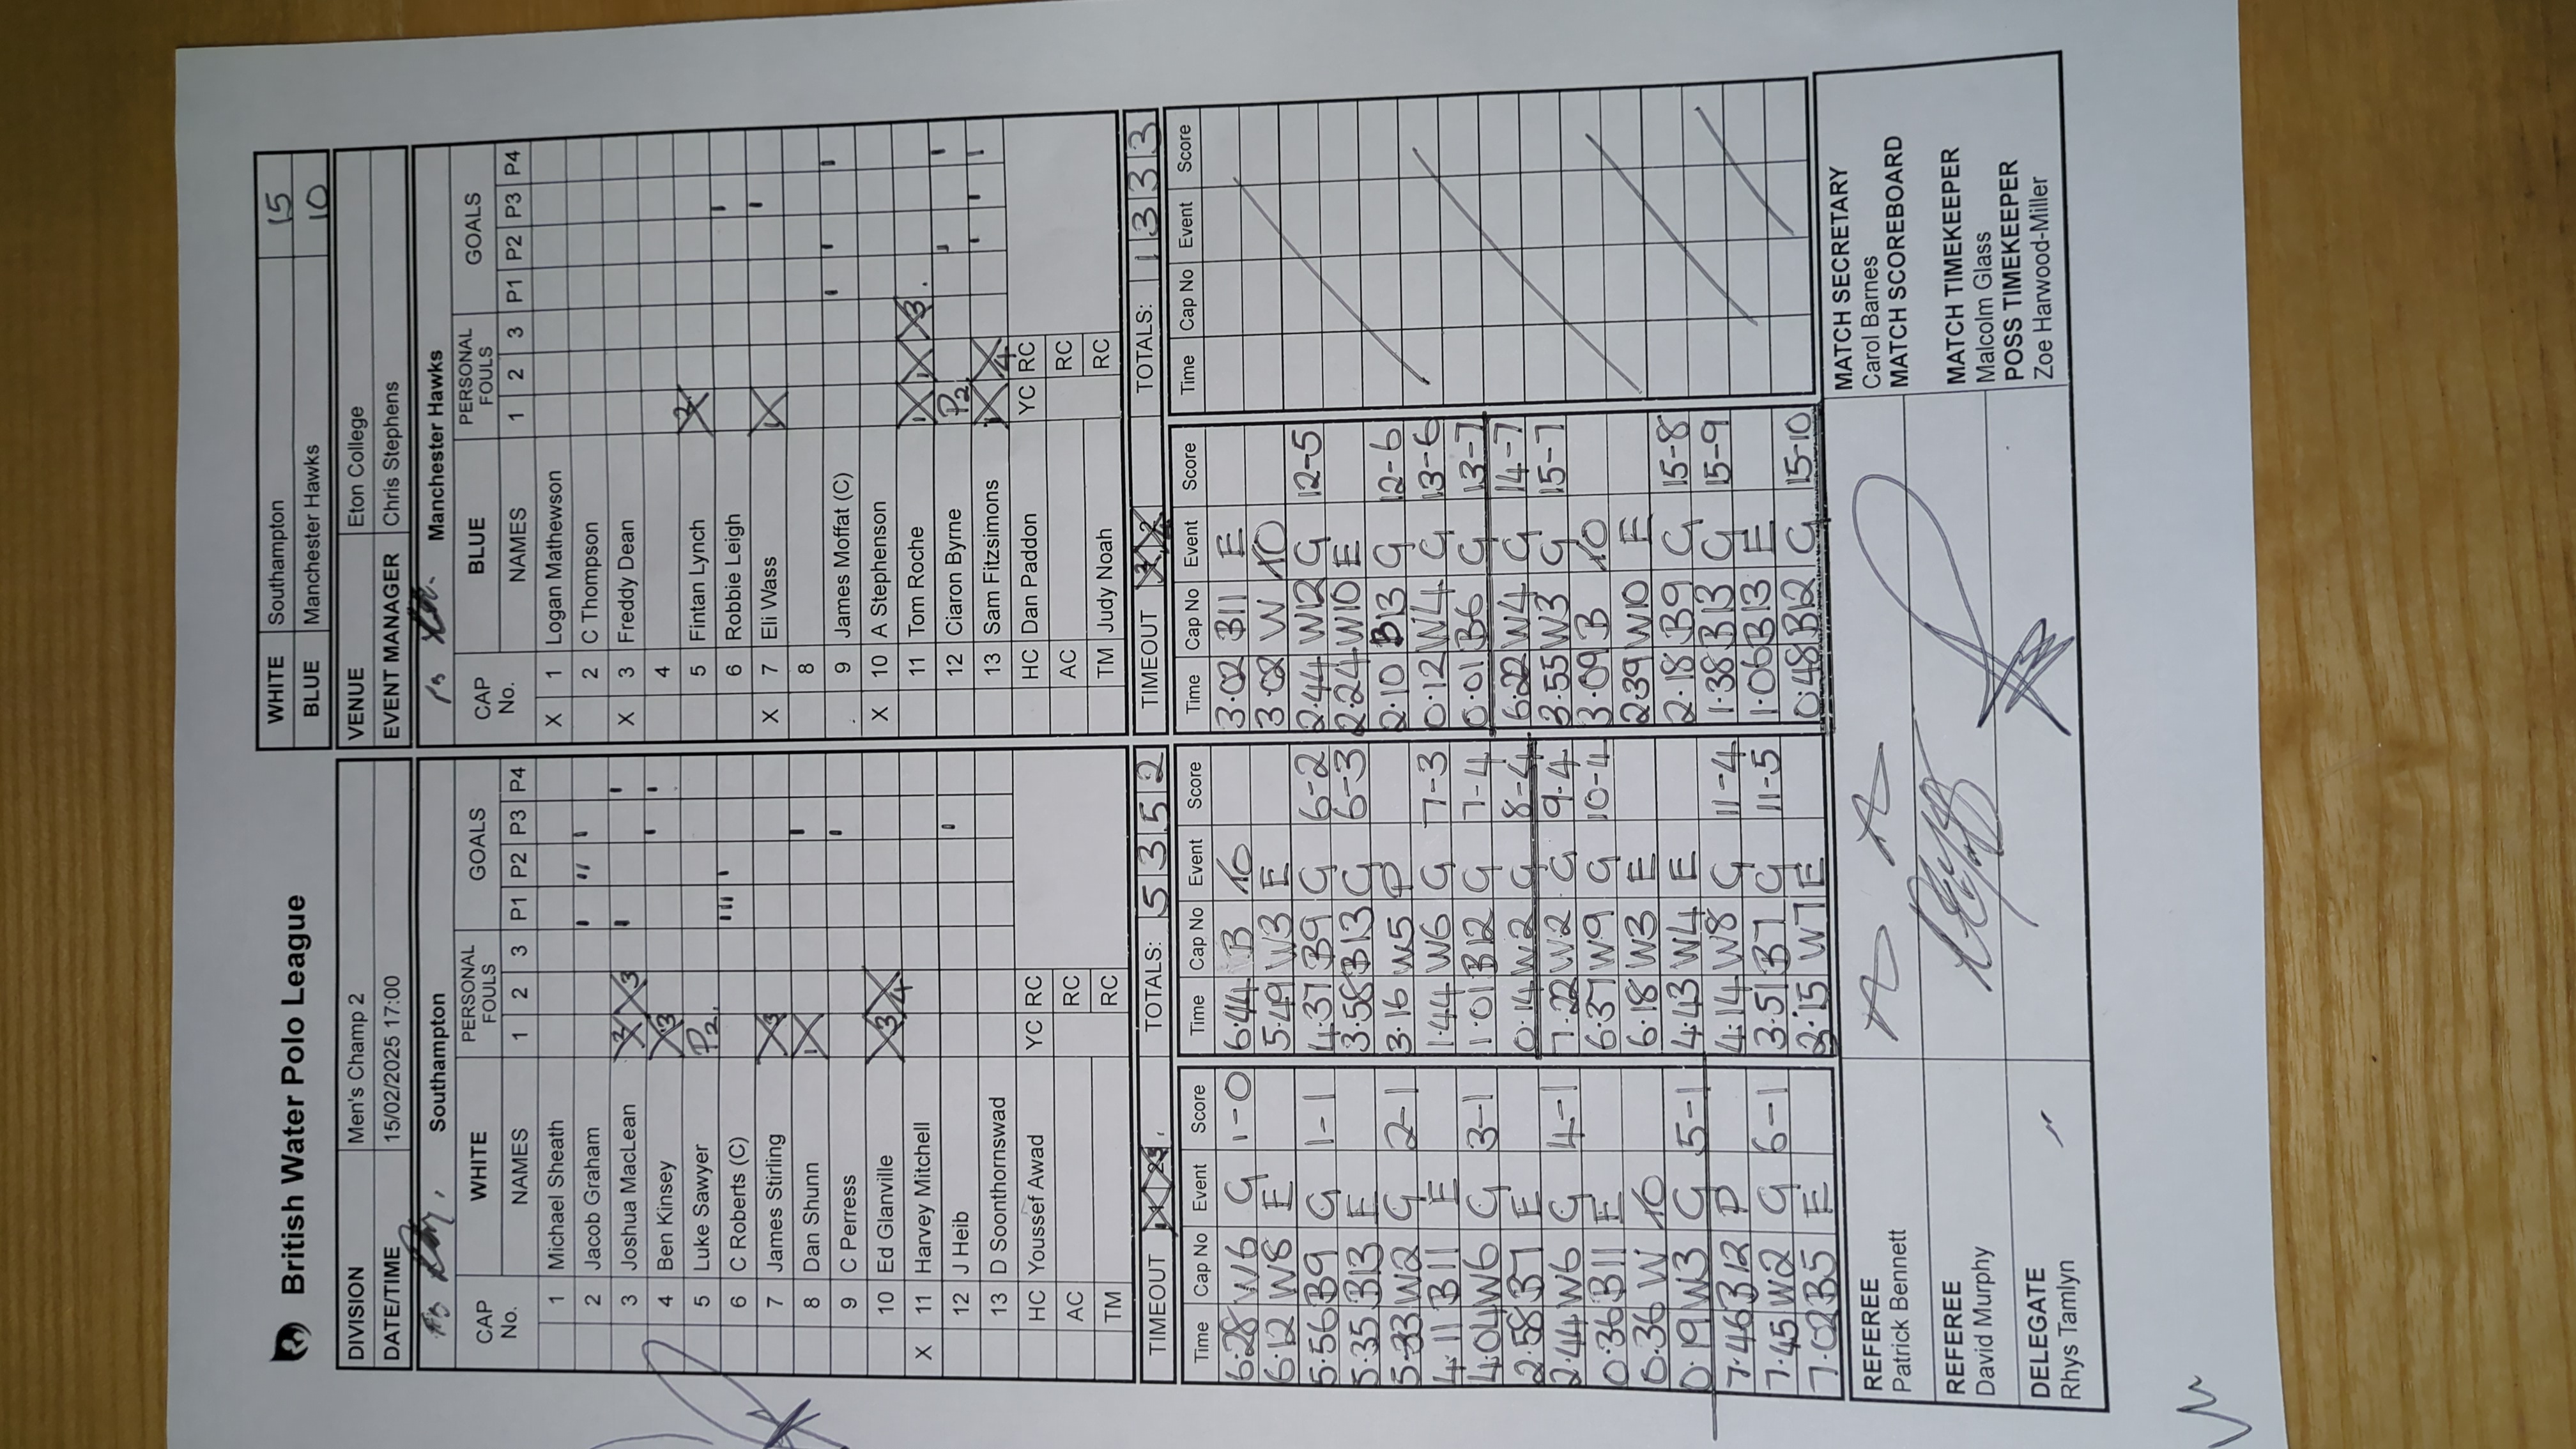 British Water Polo League
WHITE Southampton 15
BLUE Manchester Hawks 10
DIVISION Men's Champ 2
DATE/TIME 15/02/2025 17:00
VENUE Eton College
EVENT MANAGER Chris Stephens
Southampton
CAP No. WHITE NAMES PERSONAL FOULS 1 2 3 GOALS P1 P2 P3 P4
1 Michael Sheath
2 Jacob Graham
3 Joshua MacLean 2 3
4 Ben Kinsey 3
5 Luke Sawyer P2
6 C Roberts (C)
7 James Stirling 3
8 Dan Shunn 1
9 C Perress
10 Ed Glanville 3 4
X 11 Harvey Mitchell
12 J Heib
13 D Soonthornswad
HC Youssef Awad YC RC
AC RC
TM RC
TIMEOUT TOTALS: 5 3 5 2
Manchester Hawks
CAP No. BLUE NAMES PERSONAL FOULS 1 2 3 GOALS P1 P2 P3 P4
X 1 Logan Mathewson
2 C Thompson
X 3 Freddy Dean
4
5 Fintan Lynch 2
6 Robbie Leigh
X 7 Eli Wass 1
8
9 James Moffat (C)
X 10 A Stephenson
11 Tom Roche 1 1 3
12 Ciaron Byrne P2
13 Sam Fitzsimons 1 4
HC Dan Paddon YC RC
AC RC
TM Judy Noah RC
TIMEOUT TOTALS: 1 3 3 3
Time Cap No Event Score
6.28 W6 G 1-0
6.12 W8 E
5.56 B9 G 1-1
5.35 B13 E
5.33 W2 G 2-1
4.11 B11 E
4.04 W6 G 3-1
2.58 B7 E
2.44 W6 G 4-1
0.36 B11 E
0.36 W TO
0.19 W3 G 5-1
7.46 B12 P
7.45 W2 G 6-1
7.02 B5 E
Time Cap No Event Score
6.44 B TO
5.49 W3 E
4.37 B9 G 6-2
3.58 B13 G 6-3
3.16 W5 P
1.44 W6 G 7-3
1.01 B12 G 7-4
0.14 W2 G 8-4
7.22 W2 G 9-4
6.37 W9 G 10-4
6.18 W3 E
4.43 W4 E
4.14 W8 G 11-4
3.51 B7 G 11-5
3.15 W7 E
Time Cap No Event Score
3.02 B11 E
3.02 W TO
2.44 W12 G 12-5
2.24 W10 E
2.10 B13 G 12-6
0.12 W4 G 13-6
0.01 B6 G 13-7
6.22 W4 G 14-7
3.55 W3 G 15-7
3.09 B TO
2.39 W10 E
2.18 B9 G 15-8
1.38 B13 G 15-9
1.06 B13 E
0.48 B12 G 15-10
Time Cap No Event Score
REFEREE
Patrick Bennett
REFEREE
David Murphy
DELEGATE
Rhys Tamlyn
MATCH SECRETARY
Carol Barnes
MATCH SCOREBOARD
MATCH TIMEKEEPER
Malcolm Glass
POSS TIMEKEEPER
Zoe Harwood-Miller